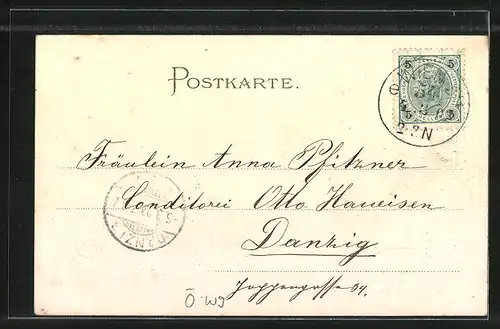 POSTKARTE.
5 5
5 5
WIEN
2-3N
Fräulein Anna Pfitzner
Conditorei Otto Haueisen
Danzig
DANZIG
Joppengasse 54.
Ö.W9